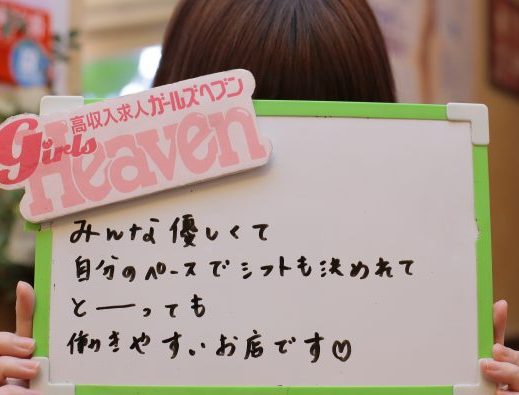 高収入求人ガールズヘブン
Girls
Heaven
みんな優しくて
自分のペースでシフトも決めれて
とーっても
働きやすいお店です♡